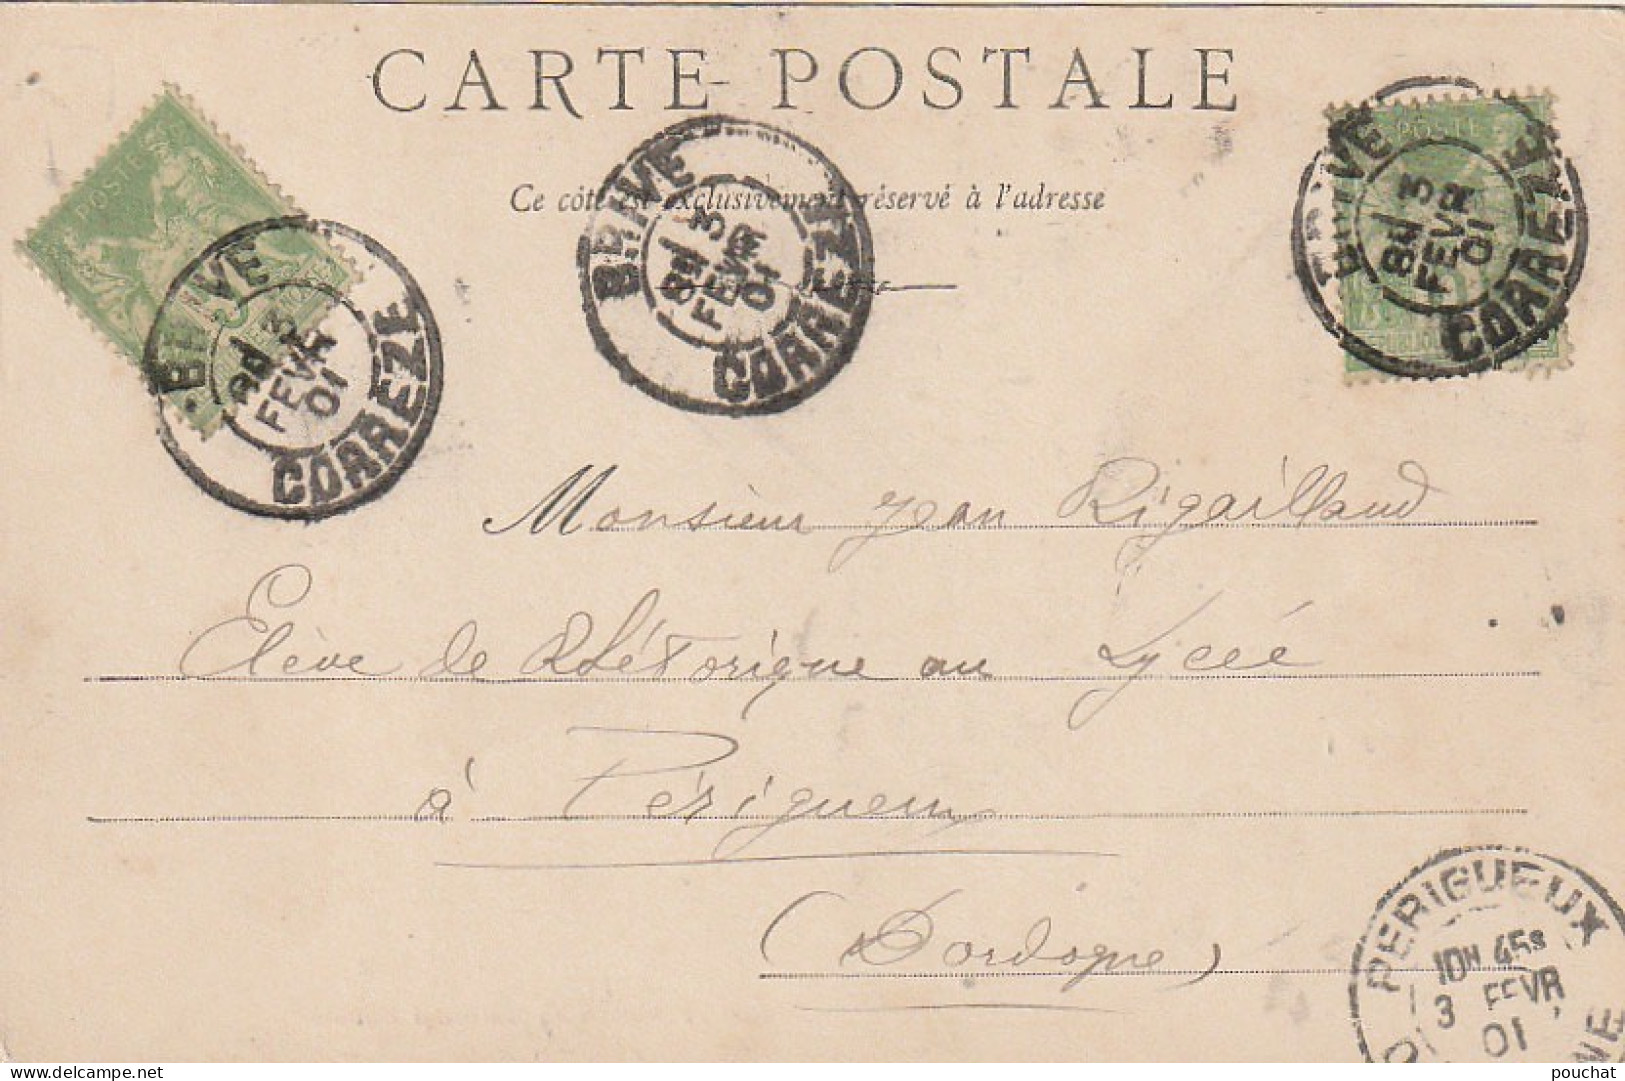 CARTE POSTALE
Ce côté est exclusivement réservé à l'adresse
POSTES
BRIVE
8d 3
FEVR
01
CORREZE
BRIVE
8d 3
FEVR
01
CORREZE
POSTE
BRIVE
8d 3
FEVR
01
CORREZE
Monsieur Jean Rigailland
Elève de Rhétorique au Lycée
à Périgueux
(Dordogne)
PERIGUEUX
10H 45S
3 FEVR
01
pouchat